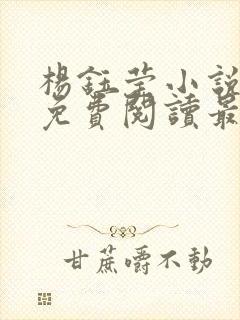 楊鈺莹小說
免費閱讀最
甘蔗嚼不動